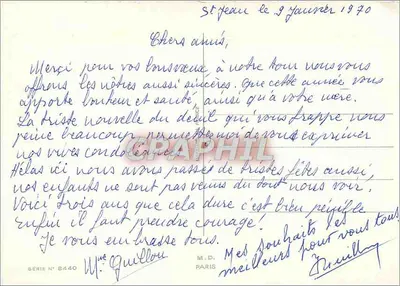 St Jean le 9 Janvier 1970
Chers amis,
Merçi pour vos bons vœux à notre tour nous vous
offrons les nôtres aussi sincères. Que cette année vous
apporte bonheur et santé, ainsi qu'à votre mère.
La triste nouvelle du deuil qui vous frappe nous
peine beaucoup, permettez moi de vous exprimer
nos vives condoléances.
Hélas ici nous avons passés de tristes fêtes aussi,
nos enfants ne sont pas venus du tout nous voir.
Voici trois ans que cela dure c'est bien pénible
Enfin il faut prendre courage.
Je vous embrasse tous.
Mme Guillou
Mes souhaits les
meilleurs pour vous tous
Guillou
SÉRIE N° 8440
M.D.
PARIS
CPAPHIL